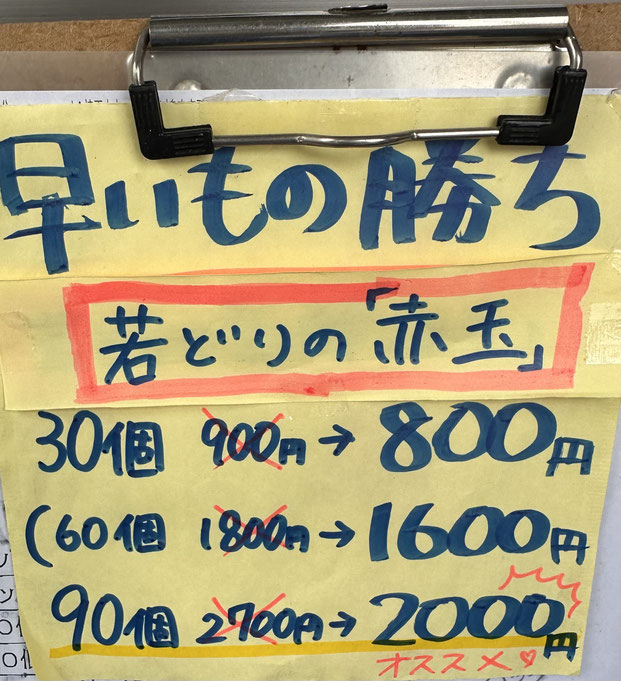 早いもの勝ち
若どりの「赤玉」
30個 900円→800円
(60個 1800円→1600円
90個 2700円→2000円
オススメ♡